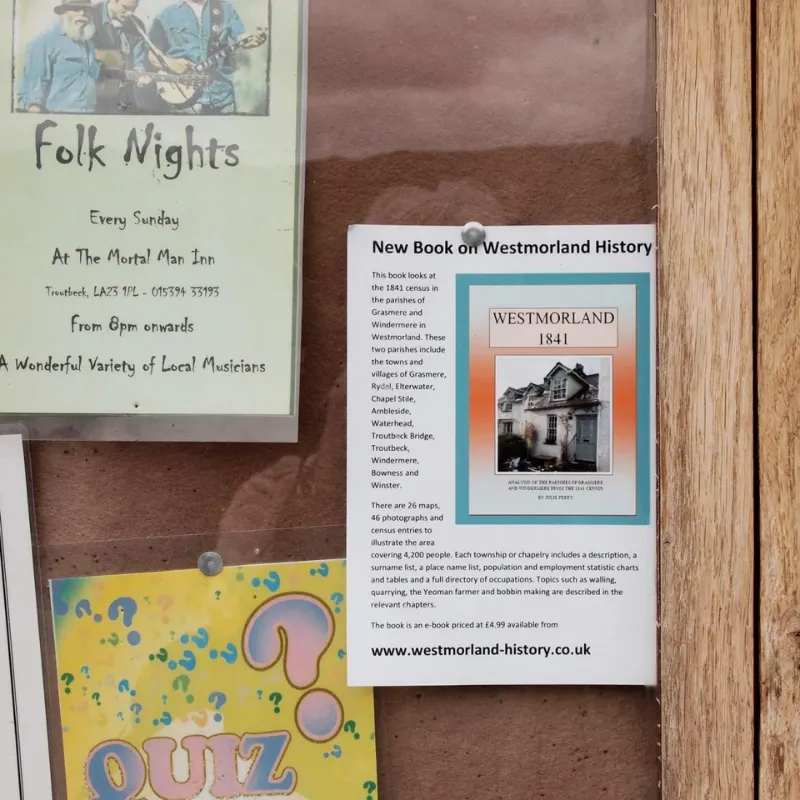 Folk Nights
Every Sunday
At The Mortal Man Inn
Troutbeck, LA23 1PL - 015394 33193
From 8pm onwards
A Wonderful Variety of Local Musicians
New Book on Westmorland History
This book looks at
the 1841 census in
the parishes of
Grasmere and
Windermere in
Westmorland. These
two parishes include
the towns and
villages of Grasmere,
Rydal, Elterwater,
Chapel Stile,
Ambleside,
Waterhead,
Troutbeck Bridge,
Troutbeck,
Windermere,
Bowness and
Winster.
WESTMORLAND
1841
ANALYSIS OF THE PARISHES OF GRASMERE
AND WINDERMERE FROM THE 1841 CENSUS
BY JULIE
There are 26 maps,
46 photographs and
census entries to
illustrate the area
covering 4,200 people. Each township or chapelry includes a description, a
surname list, a place name list, population and employment statistic charts
and tables and a full directory of occupations. Topics such as walling,
quarrying, the Yeoman farmer and bobbin making are described in the
relevant chapters.
The book is an e-book priced at £4.99 available from
www.westmorland-history.co.uk
?
QUIZ